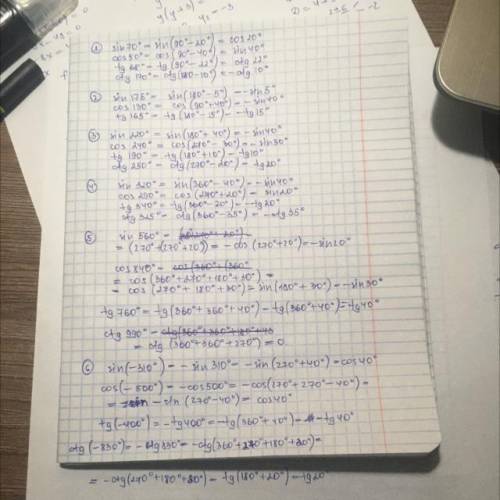 ① sin70° = sin(90°-20°) = cos20°
cos50° = cos(90°-40°) = sin40°
tg68° = tg(90°-22°) = ctg22°
ctg170° = ctg(180°-10°) = -ctg10°
② sin175° = sin(180°-5°) = -sin5°
cos130° = cos(90°+40°) = -sin40°
tg165° = tg(180°-15°) = -tg15°
③ sin220° = sin(180°+40°) = -sin40°
cos240° = cos(270°-30°) = -sin30°
tg190° = tg(180°+10°) = tg10°
ctg250° = ctg(270°-20°) = tg20°
④ sin320° = sin(360°-40°) = -sin40°
cos290° = cos(270°+20°) = sin20°
tg340° = tg(360°-20°) = -tg20°
ctg325° = ctg(360°-35°) = -ctg35°
⑤ sin560° =
= (270°+(270°+20°)) = -cos(270°+20°) = -sin20°
cos840° = cos(360°+(360°
= cos(360°+270°+180°+30°) =
= cos(270°+180°+30°) = sin(180°+30°) = -sin30°
tg760° = tg(360°+360°+40°) = tg(360°+40°) = tg40°
ctg990° = ctg(360°+360°+180°+
= ctg(360°+360°+270°) = 0
⑥ sin(-310°) = -sin310° = -sin(270°+40°) = cos40°
cos(-500°) = -cos500° = -cos(270°+270°-40°) =
= -sin(270°-40°) = cos40°
tg(-400°) = -tg400° = -tg(360°+40°) = -tg40°
ctg(-830°) = -ctg830° = -ctg(360°+270°+180°+20°) =
= -ctg(270°+180°+20°) = tg(180°+20°) = tg20°